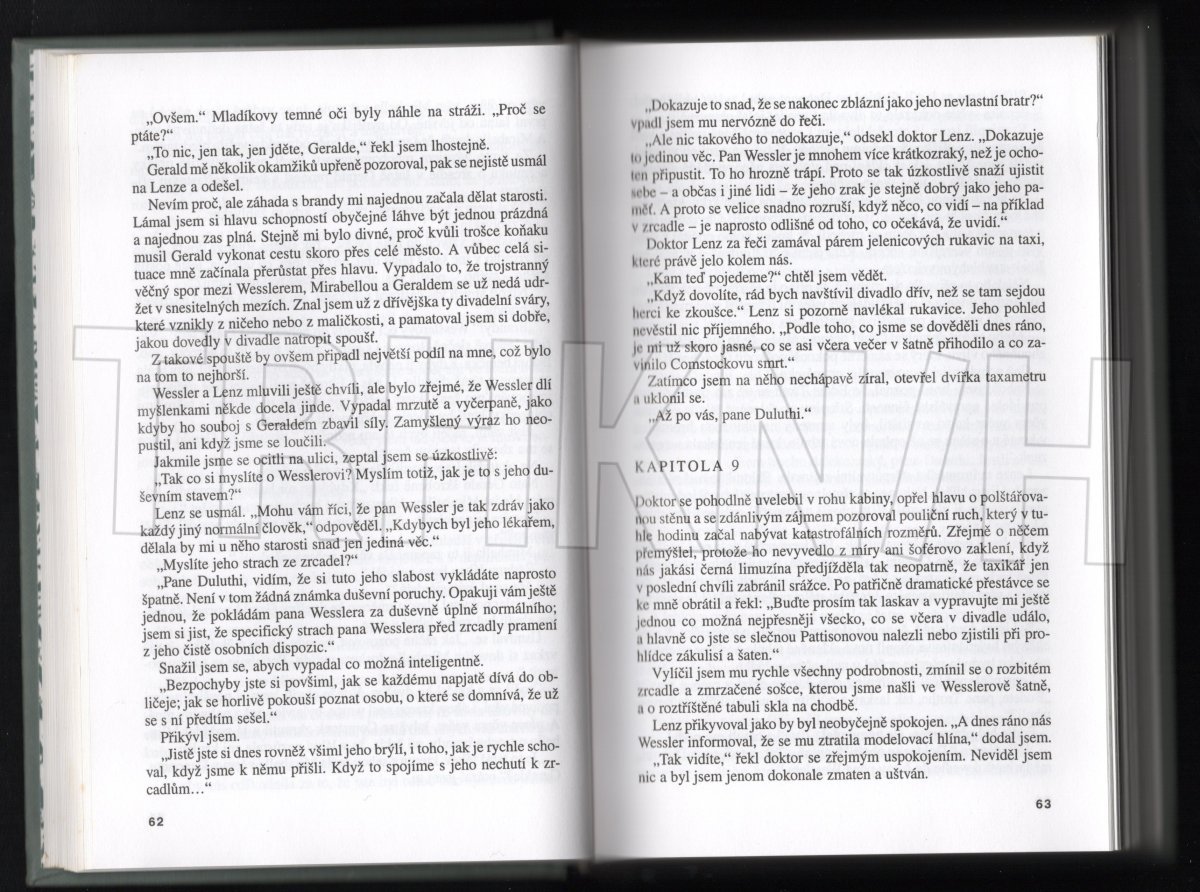 „Ovšem.“ Mladíkovy temné oči byly náhle na stráži. „Proč se
ptáte?“
„To nic, jen tak, jen jděte, Geralde,“ řekl jsem lhostejně.
Gerald mě několik okamžiků upřeně pozoroval, pak se nejistě usmál
na Lenze a odešel.
Nevím proč, ale záhada s brandy mi najednou začala dělat starosti.
Lámal jsem si hlavu schopností obyčejné láhve být jednou prázdná
a najednou zas plná. Stejně mi bylo divné, proč kvůli trošce koňaku
musil Gerald vykonat cestu skoro přes celé město. A vůbec celá si-
tuace mně začínala přerůstat přes hlavu. Vypadalo to, že trojstranný
věčný spor mezi Wesslerem, Mirabellou a Geraldem se už nedá udr-
žet v snesitelných mezích. Znal jsem už z dřívějška ty divadelní sváry,
které vznikly z ničeho nebo z maličkosti, a pamatoval jsem si dobře,
jakou dovedly v divadle natropit spoušť.
Z takové spouště by ovšem připadl největší podíl na mne, což bylo
na tom to nejhorší.
Wessler a Lenz mluvili ještě chvíli, ale bylo zřejmé, že Wessler dlí
myšlenkami někde docela jinde. Vypadal mrzutě a vyčerpaně, jako
kdyby ho souboj s Geraldem zbavil síly. Zamyšlený výraz ho neo-
pustil, ani když jsme se loučili.
Jakmile jsme se ocitli na ulici, zeptal jsem se úzkostlivě:
„Tak co si myslíte o Wesslerovi? Myslím totiž, jak je to s jeho du-
ševním stavem?“
Lenz se usmál. „Mohu vám říci, že pan Wessler je tak zdráv jako
každý jiný normální člověk,“ odpověděl. „Kdybych byl jeho lékařem,
dělala by mi u něho starosti snad jen jediná věc.“
„Myslíte jeho strach ze zrcadel?“
„Pane Duluthi, vidím, že si tuto jeho slabost vykládáte naprosto
špatně. Není v tom žádná známka duševní poruchy. Opakuji vám ještě
jednou, že pokládám pana Wesslera za duševně úplně normálního;
jsem si jist, že specifický strach pana Wesslera před zrcadly pramení
z jeho čistě osobních dispozic.“
Snažil jsem se, abych vypadal co možná inteligentně.
„Bezpochyby jste si povšiml, jak se každému napjatě dívá do ob-
ličeje; jak se horlivě pokouší poznat osobu, o které se domnívá, že už
se s ní předtím sešel.“
Přikývl jsem.
„Jistě jste si dnes rovněž všiml jeho brýlí, i toho, jak je rychle scho-
val, když jsme k němu přišli. Když to spojíme s jeho nechutí k zr-
cadlům…“
62
„Dokazuje to snad, že se nakonec zblázní jako jeho nevlastní bratr?“
vpadl jsem mu nervózně do řeči.
„Ale nic takového to nedokazuje,“ odsekl doktor Lenz. „Dokazuje
to jedinou věc. Pan Wessler je mnohem více krátkozraký, než je ocho-
ten připustit. To ho hrozně trápí. Proto se tak úzkostlivě snaží ujistit
sebe – a občas i jiné lidi – že jeho zrak je stejně dobrý jako jeho pa-
měť. A proto se velice snadno rozruší, když něco, co vidí – na příklad
v zrcadle – je naprosto odlišné od toho, co očekává, že uvidí.“
Doktor Lenz za řeči zamával párem jelenicových rukavic na taxi,
které právě jelo kolem nás.
„Kam teď pojedeme?“ chtěl jsem vědět.
„Když dovolíte, rád bych navštívil divadlo dřív, než se tam sejdou
herci ke zkoušce.“ Lenz si pozorně navlékal rukavice. Jeho pohled
nevěstil nic příjemného. „Podle toho, co jsme se dověděli dnes ráno,
je mi už skoro jasné, co se asi včera večer v šatně přihodilo a co za-
vinilo Comstockovu smrt.“
Zatímco jsem na něho nechápavě zíral, otevřel dvířka taxametru
a uklonil se.
„Až po vás, pane Duluthi.“
KAPITOLA 9
Doktor se pohodlně uvelebil v rohu kabiny, opřel hlavu o polštářova-
nou stěnu a se zdánlivým zájmem pozoroval pouliční ruch, který v tu-
hle hodinu začal nabývat katastrofálních rozměrů. Zřejmě o něčem
přemýšlel, protože ho nevyvedlo z míry ani šoférovo zaklení, když
nás jakási černá limuzína předjížděla tak neopatrně, že taxikář jen
v poslední chvíli zabránil srážce. Po patřičně dramatické přestávce se
ke mně obrátil a řekl: „Buďte prosím tak laskav a vypravujte mi ještě
jednou co možná nejpřesněji všecko, co se včera v divadle událo,
a hlavně co jste se slečnou Pattisonovou nalezli nebo zjistili při pro-
hlídce zákulisí a šaten.“
Vylíčil jsem mu rychle všechny podrobnosti, zmínil se o rozbitém
zrcadle a zmrzačené sošce, kterou jsme našli ve Wesslerově šatně,
a o roztříštěné tabuli skla na chodbě.
Lenz přikyvoval jako by byl neobyčejně spokojen. „A dnes ráno nás
Wessler informoval, že se mu ztratila modelovací hlína,“ dodal jsem.
„Tak vidíte,“ řekl doktor se zřejmým uspokojením. Neviděl jsem
nic a byl jsem jenom dokonale zmaten a uštván.
63
TRHKNIH